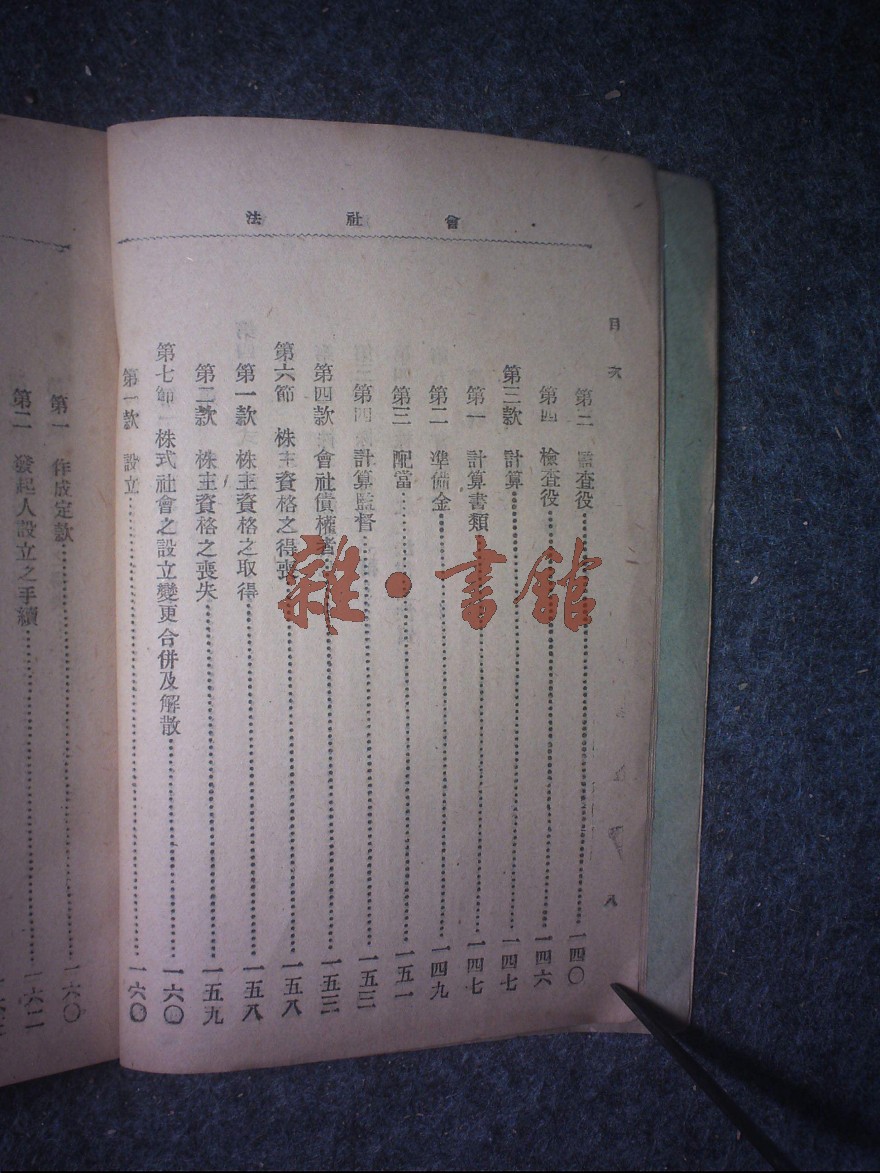 會社法
目次
八
第三 監查役……一四〇
第四 檢查役……一四六
第三款 計算……一四七
第一 計算書類……一四七
第二 準備金……一四九
第三 配當……一五一
第四 計算監督……一五三
第四款 會社債權者……一五三
第六節 株主資格之得喪……一五八
第一款 株主資格之取得……一五八
第二款 株主資格之喪失……一五九
第七節 株式社會之設立變更合併及解散……一六〇
第一款 設立……一六〇
第一 作成定款……一六〇
第二 發起人設立之手續……一六二
雜·書館